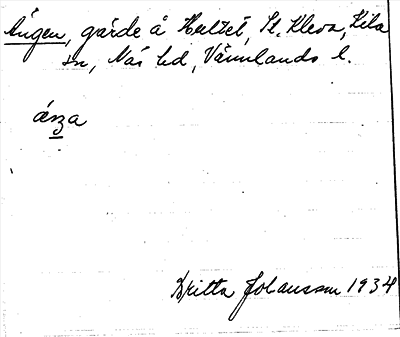 Ängen, gärde å Hultet, St. Kleva, Kila
sn, Näs hd, Värmlands l.
Britta Johansson 1934